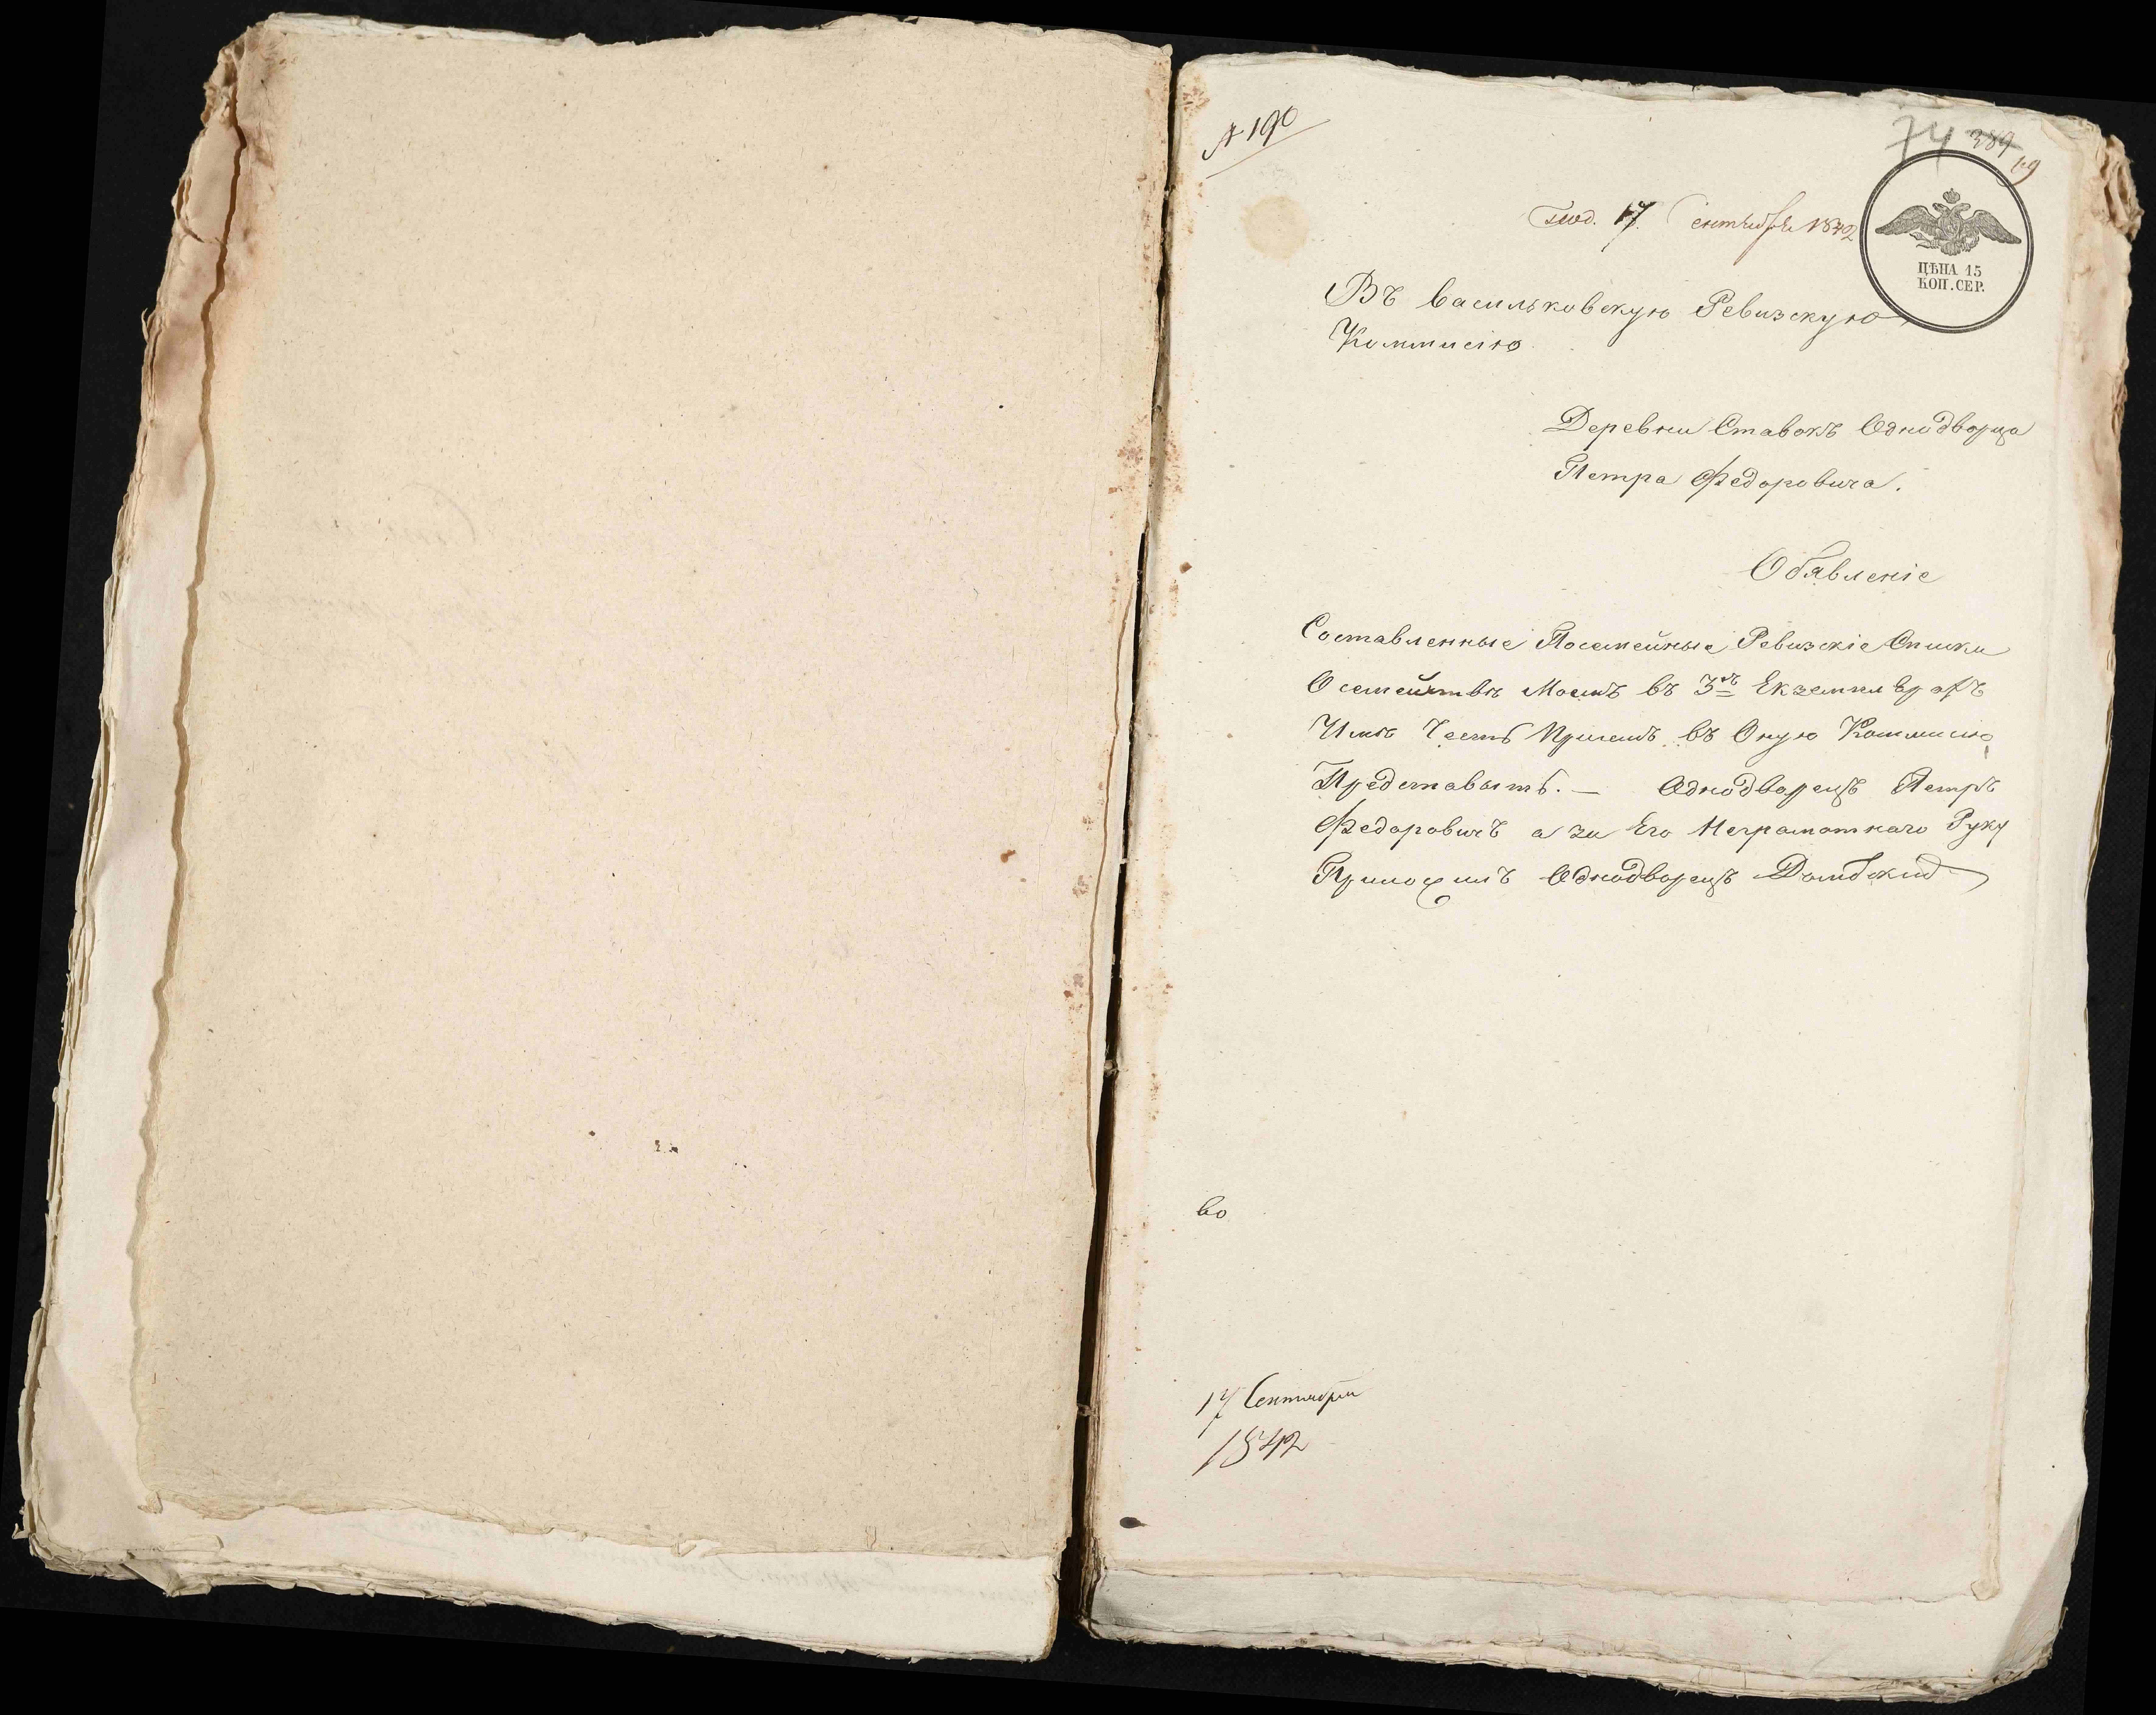 № 190
74 389
19
Под. 17 Сентября 1842
ЦѢНА 15
КОП. СЕР.
Въ васильковскую Ревизскую
Коммисію
Деревни Ставокъ Однодворца
Петра Федоровича.
Обявленіе
Составленные Посемейные Ревизскіе Списки
О семействѣ Моемъ въ 3хъ Екземплярахъ
Имѣю Честь Присемъ въ Оную Коммисію
Представыть. — Однодворецъ Петръ
Федоровичъ а за Его Неграмотнаго Руку
Приложилъ Однодворецъ Домбскій
во
17 Сентября
1842